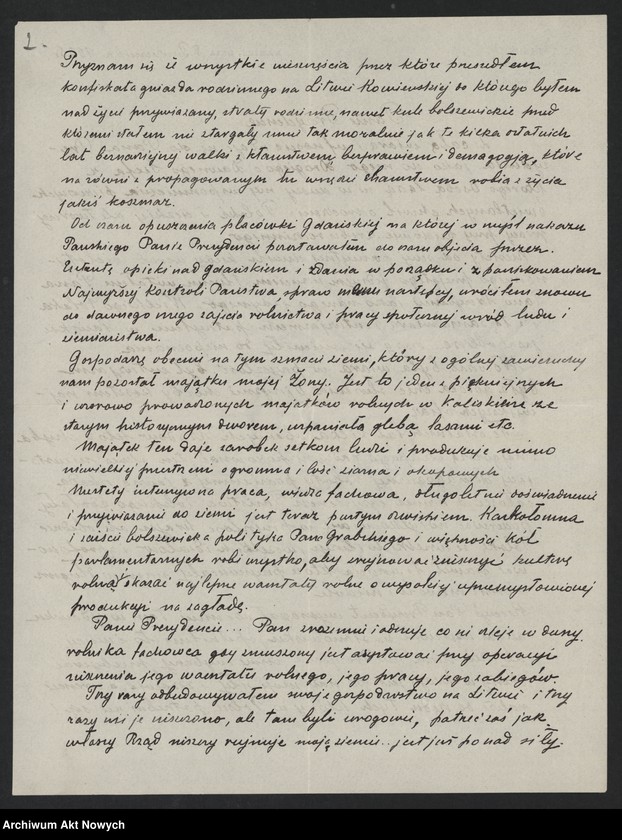 2.
Przyznam się iż wszystkie nieszczęścia przez które przeszedłem
konfiskata gniazda rodzinnego na Litwie Kowieńskiej do którego byłem
nad życie przywiązany, straty rodzinne, nawet kule bolszewickie pod
któremi stałem nie stargały mnie tak moralnie jak te kilka ostatnich
lat beznadziejnej walki z kłamstwem, bezprawiem i demagogją, które
na równi z propagowanym tu wszędzie chamstwem robią z życia
jakiś koszmar.
Od czasu opuszczenia placówki Gdańskiej na której w myśl nakazu
Pańskiego Panie Prezydencie pozostawałem do czasu objęcia przez
Ententę opieki nad Gdańskiem i zdania w porządku i z
Najwyższej Kontroli Państwa, spraw memu następcy, wróciłem znowu
do dawnego mego zajęcia rolnictwa i pracy społecznej wśród ludu i
ziemiaństwa.
Gospodarzę obecnie na tym szmacie ziemi, który z ogólnej zawieruchy
nam pozostał majątku mojej Żony. Jest to jeden z piękniejszych
i wzorowo prowadzonych majątków rolnych w Kaliskiem ze
starym historycznym dworem, wspaniałą glebą lasami etc.
Majątek ten daje zarobek setkom ludzi i produkuje mimo
niewielkiej przestrzeni ogromną ilość ziarna i okopowych
Niestety intensywna praca, wiedza fachowa, długoletnie doświadczenie
i przywiązanie do ziemi jest teraz pustym dźwiękiem. Karkołomna
i iście bolszewicka polityka Pana Grabskiego i większości kół
parlamentarnych robi wszystko, aby zrujnować zniszczyć kulturę
rolną i skazać najlepsze warsztaty rolne o wysokiej uprzemysłowionej
produkcji na zagładę.
Panie Prezydencie... Pan zrozumie i odczuje co się dzieje w duszy
rolnika fachowca gdy zmuszony jest asystować przy operacji
niszczenia jego warsztatu rolnego, jego pracy, jego zabiegów.
Trzy razy odbudowywałem swoje gospodarstwo na Litwie i trzy
razy mi je niszczono, ale tam byli wrogowie, patrzeć zaś jak
własny Rząd niszczy rujnuje moją ziemię.. jest już ponad siły.
Archiwum Akt Nowych